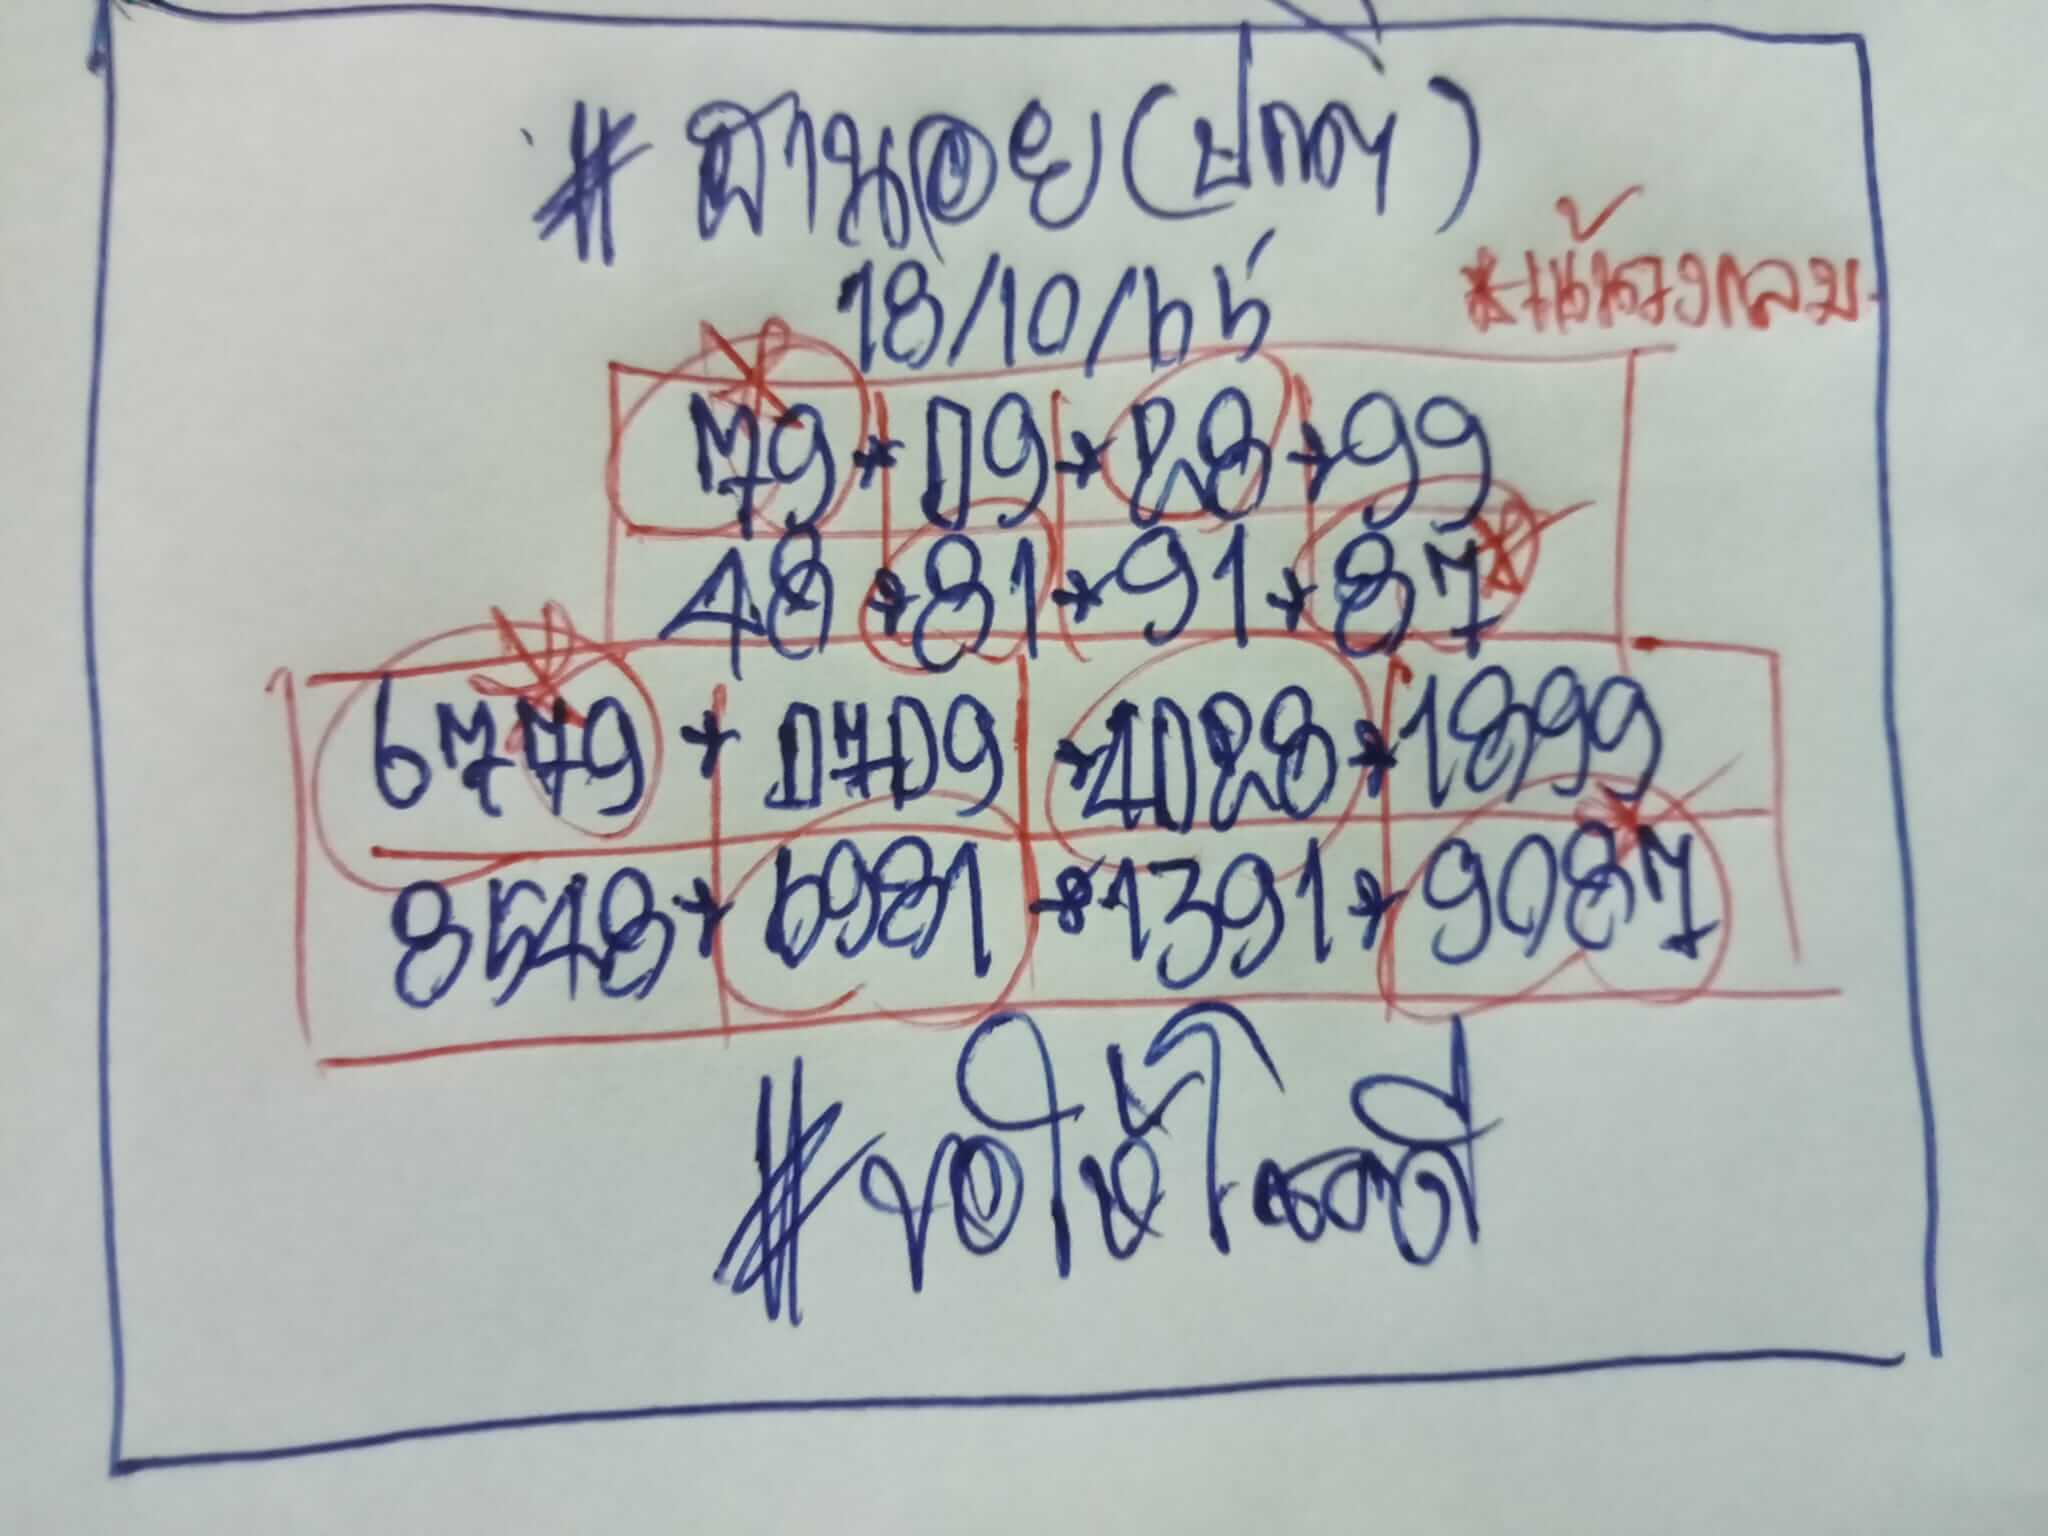 #ฮานอย(ปกติ)
18/10/66
*เน้นวงกลม
79*09*28*99
48*81*91*87
6779*0709*4028*1899
8548*6981*1391*9087
#ขอให้โชคดี